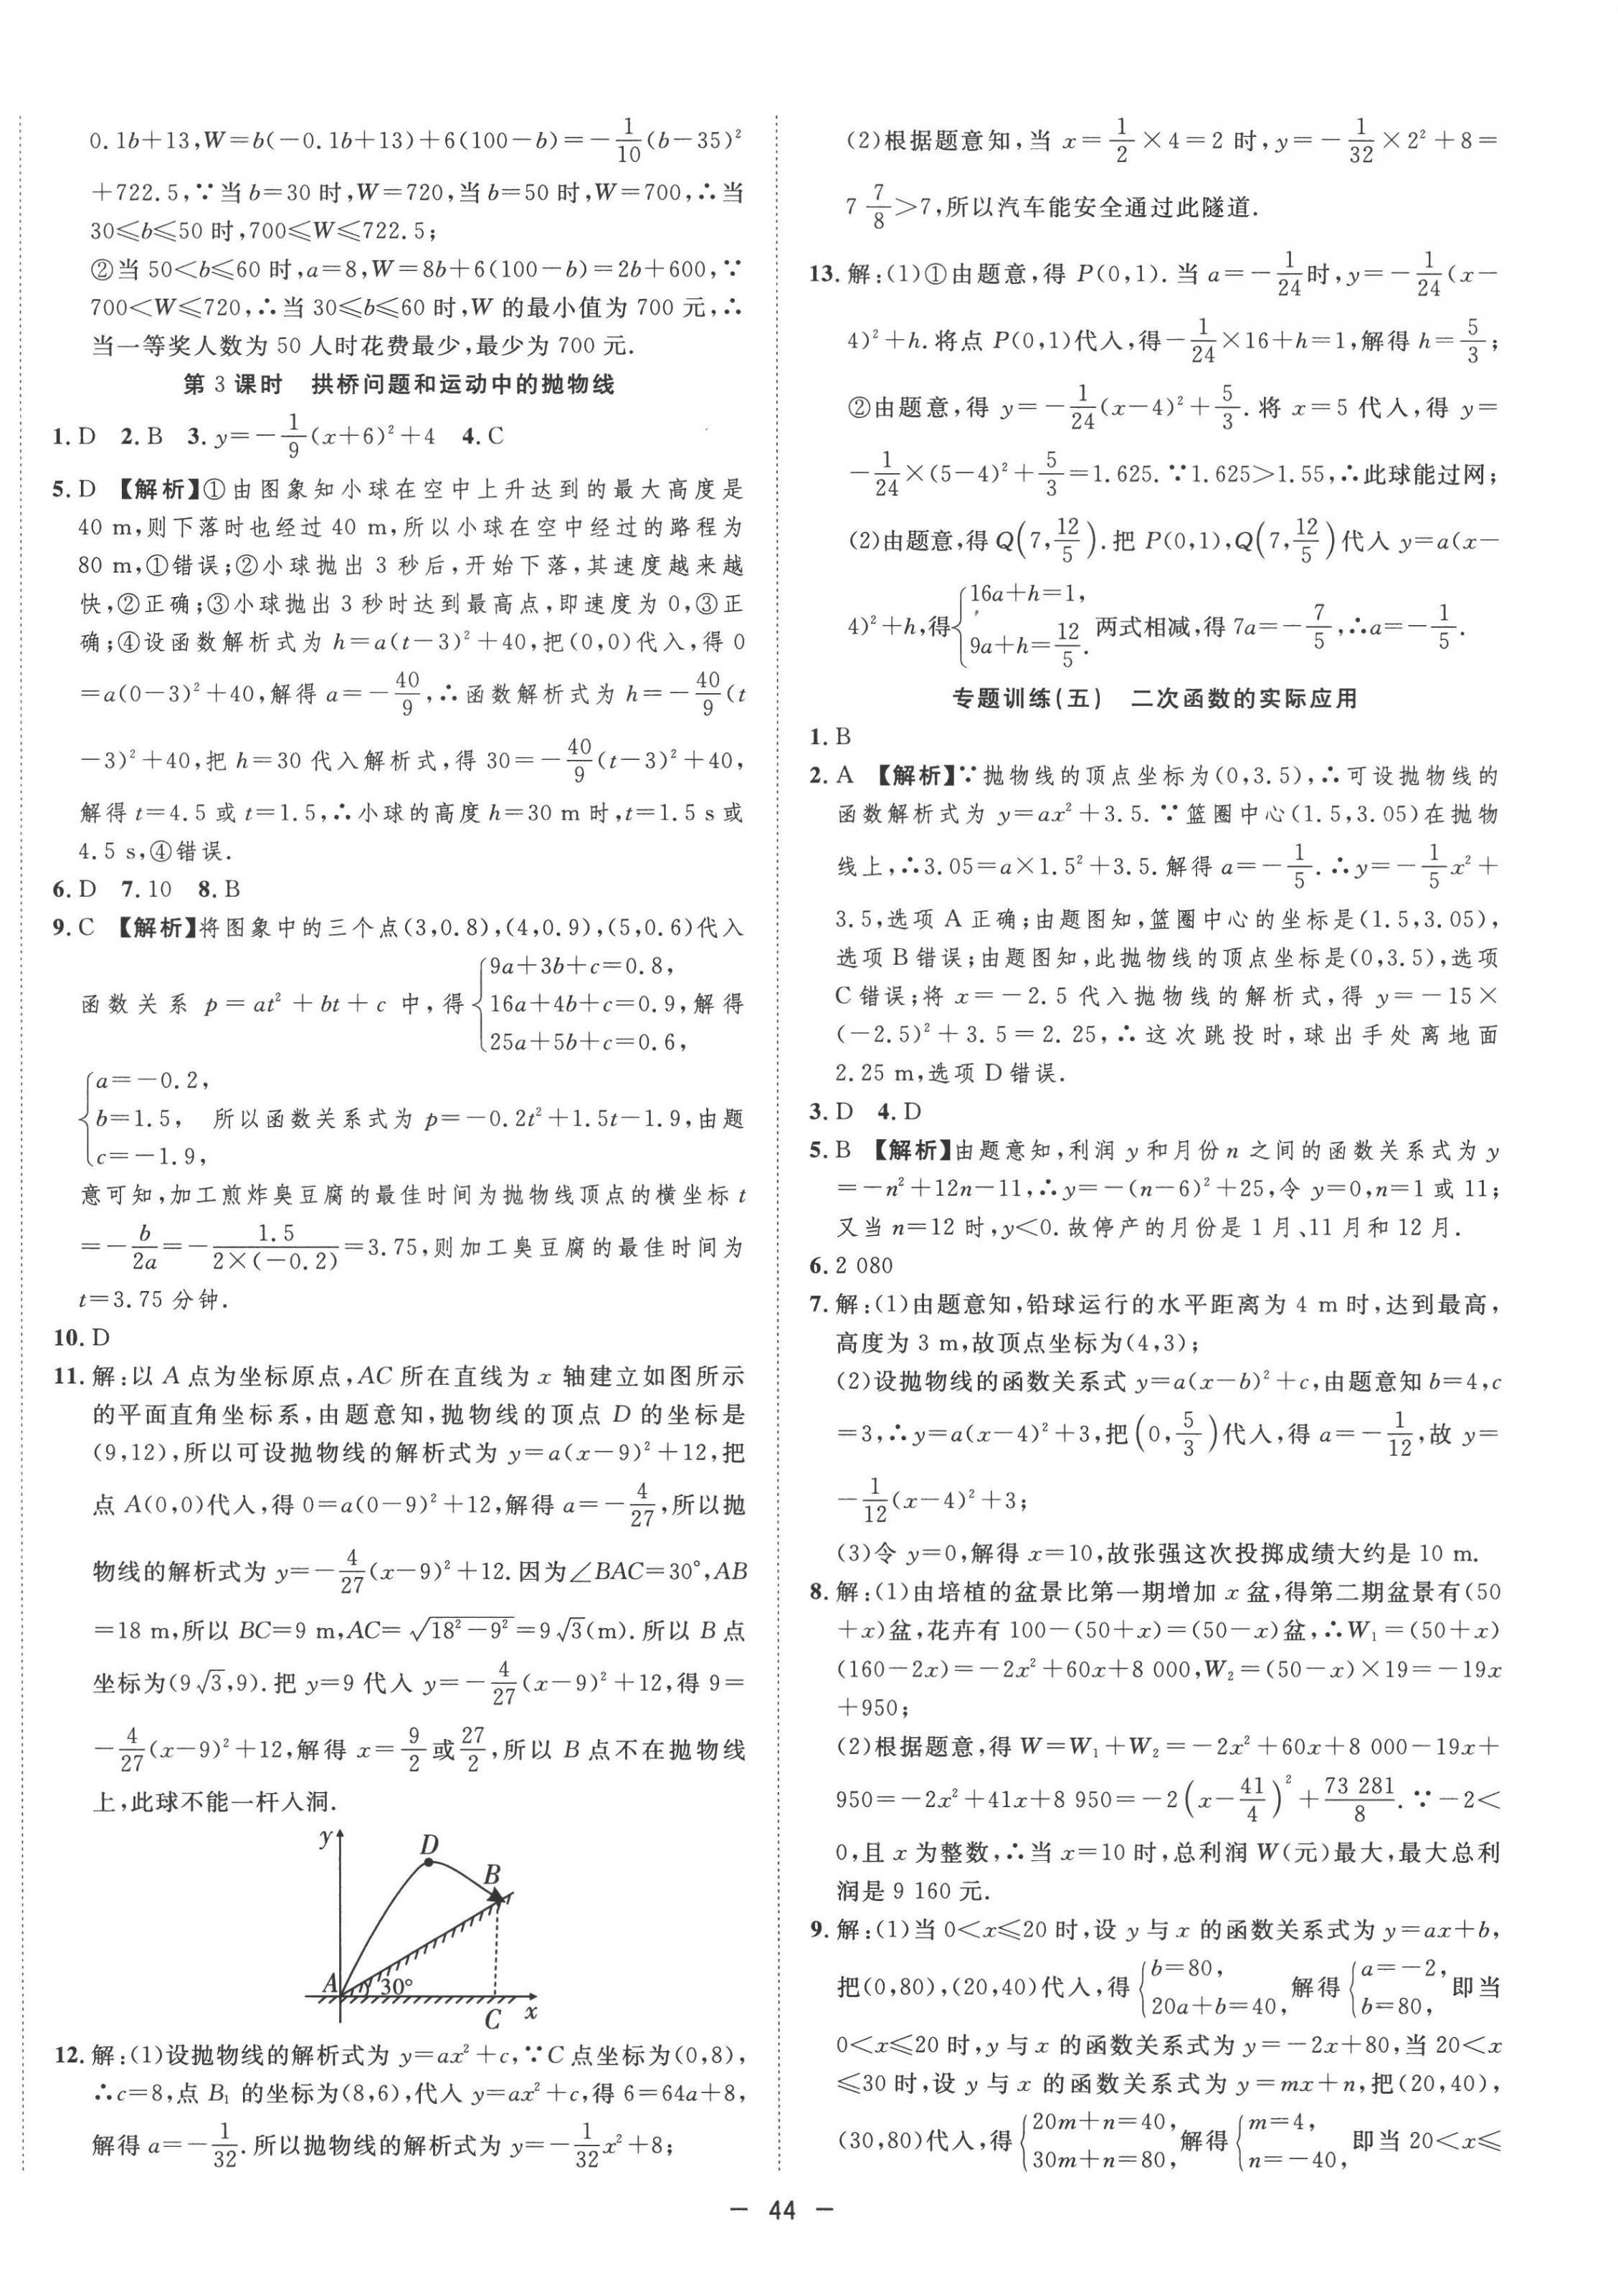 0.1b+13,W=b(-0.1b+13)+6(100-b)=-\frac{1}{10}(b-35)²
+722.5,∵当 b=30 时,W=720,当 b=50 时,W=700,∴当
30≤b≤50 时,700≤W≤722.5;
②当 50<b≤60 时,a=8,W=8b+6(100-b)=2b+600,∵
700<W≤720,∴当 30≤b≤60 时,W 的最小值为 700 元,∴
当一等奖人数为 50 人时花费最少,最少为 700 元.
第 3 课时 拱桥问题和运动中的抛物线
1. D 2. B 3. y=-\frac{1}{9}(x+6)²+4 4. C
5. D 【解析】①由图象知小球在空中上升达到的最大高度是
40 m,则下落时也经过 40 m,所以小球在空中经过的路程为
80 m,①错误;②小球抛出 3 秒后,开始下落,其速度越来越
快,②正确;③小球抛出 3 秒时达到最高点,即速度为 0,③正
确;④设函数解析式为 h=a(t-3)²+40,把(0,0)代入,得 0
=a(0-3)²+40,解得 a=-\frac{40}{9},∴函数解析式为 h=-\frac{40}{9}(t
-3)²+40,把 h=30 代入解析式,得 30=-\frac{40}{9}(t-3)²+40,
解得 t=4.5 或 t=1.5,∴小球的高度 h=30 m 时,t=1.5 s 或
4.5 s,④错误.
6. D 7. 10 8. B
9. C 【解析】将图象中的三个点(3,0.8),(4,0.9),(5,0.6)代入
函数关系 p=at²+bt+c 中,得{9a+3b+c=0.8, 16a+4b+c=0.9, 25a+5b+c=0.6,解得
{a=-0.2, b=1.5, c=-1.9, 所以函数关系式为 p=-0.2t²+1.5t-1.9,由题
意可知,加工煎炸臭豆腐的最佳时间为抛物线顶点的横坐标 t
=-\frac{b}{2a}=-\frac{1.5}{2×(-0.2)}=3.75,则加工臭豆腐的最佳时间为
t=3.75 分钟.
10. D
11. 解:以 A 点为坐标原点,AC 所在直线为 x 轴建立如图所示
的平面直角坐标系,由题意知,抛物线的顶点 D 的坐标是
(9,12),所以可设抛物线的解析式为 y=a(x-9)²+12,把
点 A(0,0)代入,得 0=a(0-9)²+12,解得 a=-\frac{4}{27},所以抛
物线的解析式为 y=-\frac{4}{27}(x-9)²+12.因为∠BAC=30°,AB
=18 m,所以 BC=9 m,AC=√(18²-9²)=9√3(m).所以 B 点
坐标为(9√3,9).把 y=9 代入 y=-\frac{4}{27}(x-9)²+12,得 9=
-\frac{4}{27}(x-9)²+12,解得 x=\frac{9}{2}或\frac{27}{2},所以 B 点不在抛物线
上,此球不能一杆入洞.
y
D
B
A
30°
C
x
12. 解:(1)设抛物线的解析式为 y=ax²+c,∵C 点坐标为(0,8),
∴c=8,点 B₁ 的坐标为(8,6),代入 y=ax²+c,得 6=64a+8,
解得 a=-\frac{1}{32}.所以抛物线的解析式为 y=-\frac{1}{32}x²+8;
(2)根据题意知,当 x=\frac{1}{2}×4=2 时,y=-\frac{1}{32}×2²+8=
7\frac{7}{8}>7,所以汽车能安全通过此隧道.
13. 解:(1)①由题意,得 P(0,1).当 a=-\frac{1}{24}时,y=-\frac{1}{24}(x-
4)²+h.将点 P(0,1)代入,得-\frac{1}{24}×16+h=1,解得 h=\frac{5}{3};
②由题意,得 y=-\frac{1}{24}(x-4)²+\frac{5}{3}.将 x=5 代入,得 y=
-\frac{1}{24}×(5-4)²+\frac{5}{3}=1.625.∵1.625>1.55,∴此球能过网;
(2)由题意,得 Q(7,\frac{12}{5}).把 P(0,1),Q(7,\frac{12}{5})代入 y=a(x-
4)²+h,得{16a+h=1, 9a+h=\frac{12}{5}. 两式相减,得 7a=-\frac{7}{5},∴a=-\frac{1}{5}.
专题训练(五) 二次函数的实际应用
1. B
2. A 【解析】∵抛物线的顶点坐标为(0,3.5),∴可设抛物线的
函数解析式为 y=ax²+3.5.∵篮圈中心(1.5,3.05)在抛物
线上,∴3.05=a×1.5²+3.5.解得 a=-\frac{1}{5}.∴y=-\frac{1}{5}x²+
3.5,选项 A 正确;由题图知,篮圈中心的坐标是(1.5,3.05),
选项 B 错误;由题图知,此抛物线的顶点坐标是(0,3.5),选项
C 错误;将 x=-2.5 代入抛物线的解析式,得 y=-15×
(-2.5)²+3.5=2.25,∴这次跳投时,球出手处离地面
2.25 m,选项 D 错误.
3. D 4. D
5. B 【解析】由题意知,利润 y 和月份 n 之间的函数关系式为 y
=-n²+12n-11,∴y=-(n-6)²+25,令 y=0,n=1 或 11;
又当 n=12 时,y<0.故停产的月份是 1 月、11 月和 12 月.
6. 2 080
7. 解:(1)由题意知,铅球运行的水平距离为 4 m 时,达到最高,
高度为 3 m,故顶点坐标为(4,3);
(2)设抛物线的函数关系式 y=a(x-b)²+c,由题意知 b=4,c
=3,∴y=a(x-4)²+3,把(0,\frac{5}{3})代入,得 a=-\frac{1}{12},故 y=
-\frac{1}{12}(x-4)²+3;
(3)令 y=0,解得 x=10,故张强这次投掷成绩大约是 10 m.
8. 解:(1)由培植的盆景比第一期增加 x 盆,得第二期盆景有(50
+x)盆,花卉有 100-(50+x)=(50-x)盆,∴W₁=(50+x)
(160-2x)=-2x²+60x+8 000,W₂=(50-x)×19=-19x
+950;
(2)根据题意,得 W=W₁+W₂=-2x²+60x+8 000-19x+
950=-2x²+41x+8 950=-2(x-\frac{41}{4})²+\frac{73 281}{8}.∵-2<
0,且 x 为整数,∴当 x=10 时,总利润 W(元)最大,最大总利
润是 9 160 元.
9. 解:(1)当 0<x≤20 时,设 y 与 x 的函数关系式为 y=ax+b,
把(0,80),(20,40)代入,得{b=80, 20a+b=40,解得{a=-2, b=80,即当
0<x≤20 时,y 与 x 的函数关系式为 y=-2x+80,当 20<x
≤30 时,设 y 与 x 的函数关系式为 y=mx+n,把(20,40),
(30,80)代入,得{20m+n=40, 30m+n=80,解得{m=4, n=-40,即当 20<x≤
— 44 —